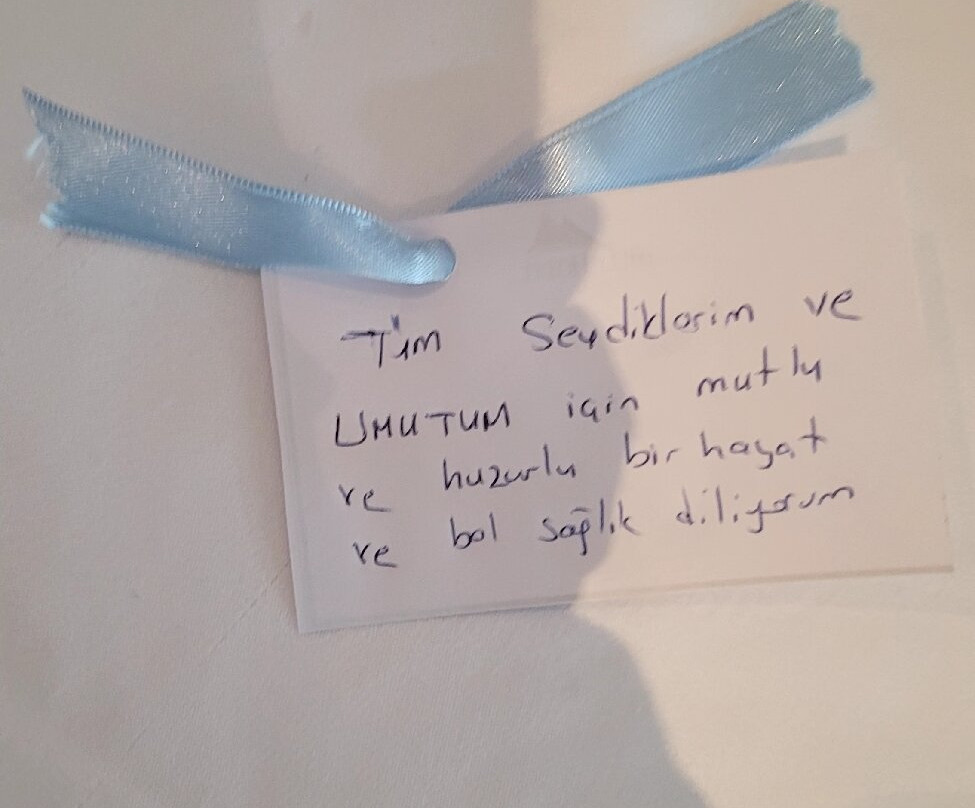 Tüm Sevdiklerim ve
UMUTUM için mutlu
ve huzurlu bir hayat
ve bol sağlık diliyorum